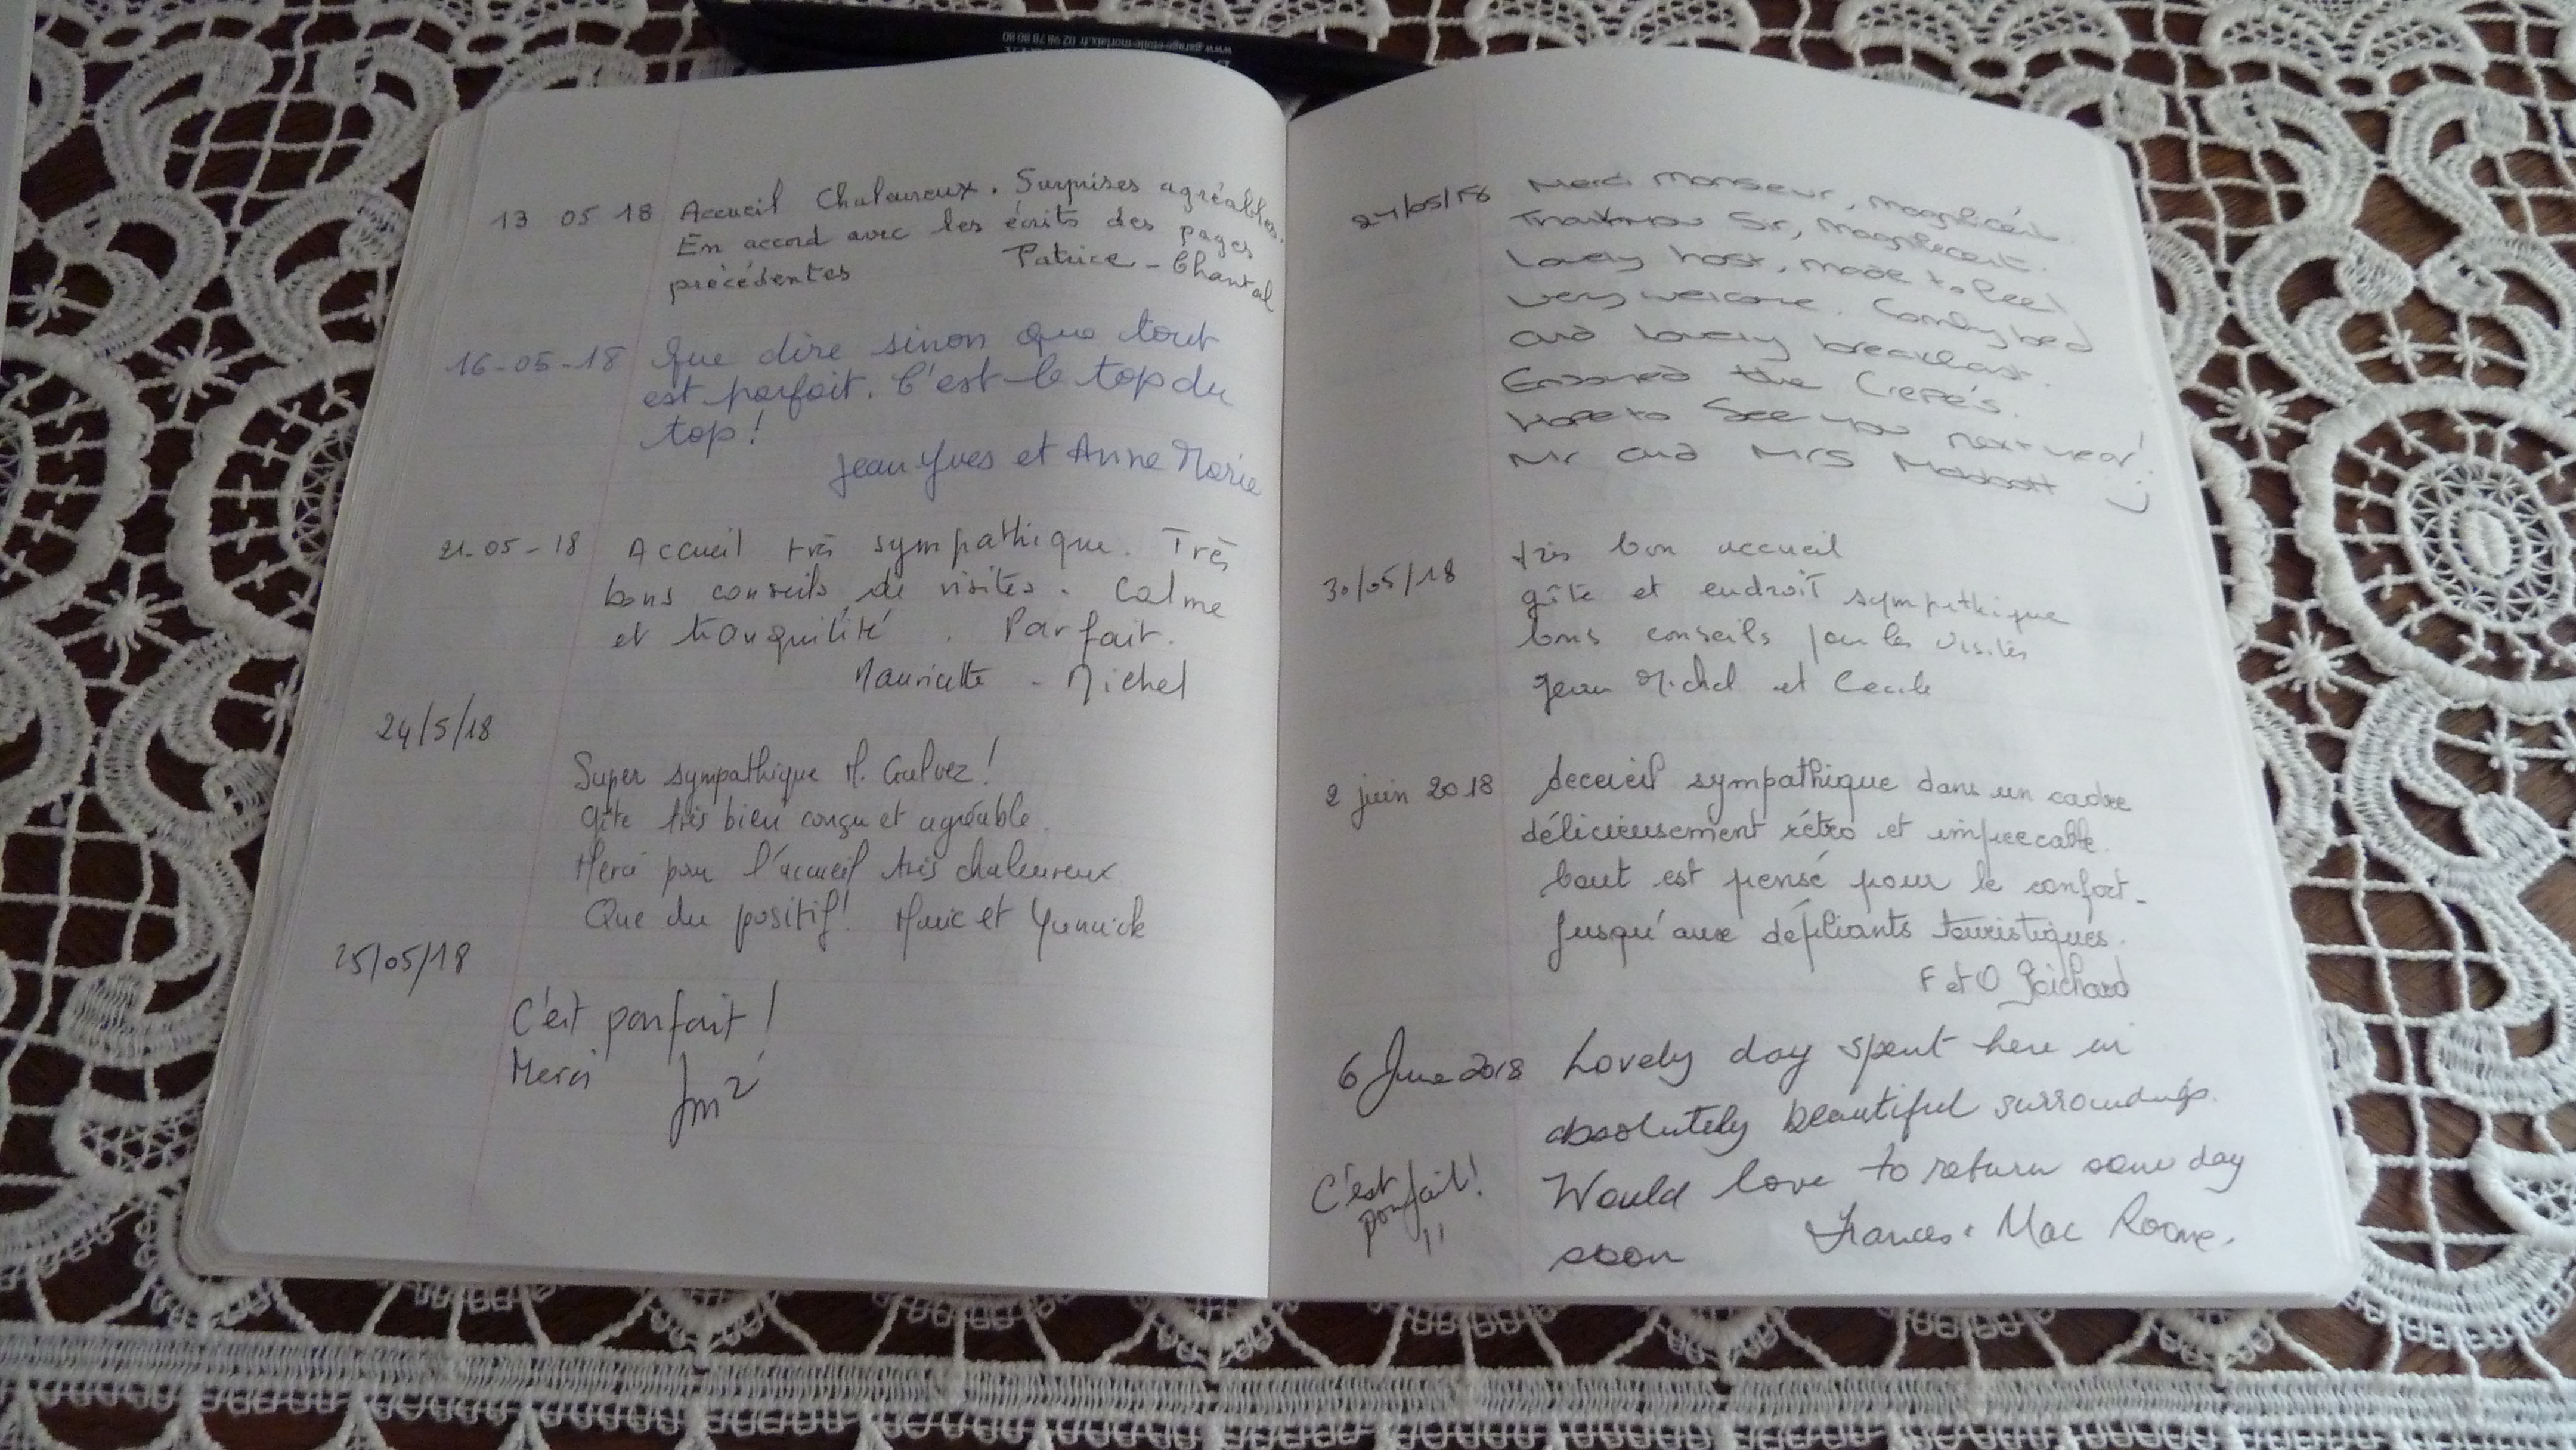 www.garage-etoile-morlaix.fr 02 98 78 80 80
13 05 18 Accueil Chaleureux. Surprises agréables.
En accord avec les écrits des pages
précédentes Patrice - Chantal
16-05-18 Que dire sinon que tout
est parfait. C'est le top du
top!
Jean Yves et Anne Marie
21-05-18 Accueil très sympathique. Très
bons conseils de visites. Calme
et tranquilité. Parfait.
Mauricette - Michel
24/5/18
Super sympathique M. Galvez!
Gîte très bien conçu et agréable.
Merci pour l'accueil très chaleureux
Que du positif! Marie et Yannick
25/05/18
C'est parfait!
Merci
Merci Monsieur, magnificent.
Thankyou Sir, Magnificent.
Lovely host, made to feel
very welcome. Comfy bed
and lovely breakfast.
Enjoyed the Crepé's.
Hope to See you next year!
Mr and Mrs :)
30/05/18 très bon accueil
gîte et endroit sympathique
bons conseils pour les visites
Jean Michel et Cecile
2 juin 2018 Accueil sympathique dans un cadre
délicieusement rétro et impeccable.
tout est pensé pour le confort-
Jusqu'aux dépliants touristiques.
F et O
6 June 2018 Lovely day spent here in
absolutely beautiful surroundings.
Would love to return some day
soon Frances & Mac
C'est
parfait!